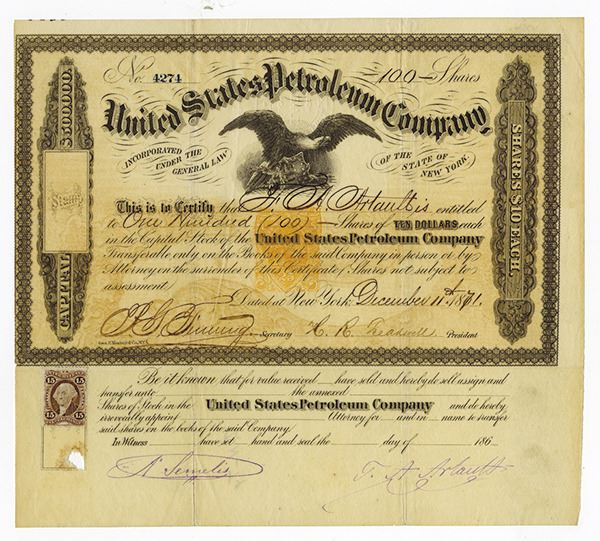 No. 4274 100 Shares
United States Petroleum Company,
INCORPORATED UNDER THE GENERAL LAW
OF THE STATE OF NEW YORK.
CAPITAL $500.000.
Stamp
SHARES $10 EACH.
This is to Certify that F. A. Arlault is entitled
to One Hundred (100) Shares of TEN DOLLARS each
in the Capital Stock of the United States Petroleum Company
Transferable only on the Books of the said Company in person or by
Attorney on the surrender of this Certificate, Shares not subject to
assessment.
Dated at New York December 11th 1871.
Secretary C. R. Treadwell President
15 15
Be it known that for value received have sold and hereby do sell assign and
transfer unto the annexed
Shares of Stock in the United States Petroleum Company and do hereby
irrevocably appoint Attorney for and in name to transfer
said shares on the books of the said Company.
In Witness have set hand and seal the day of 186
F. A. Arlault